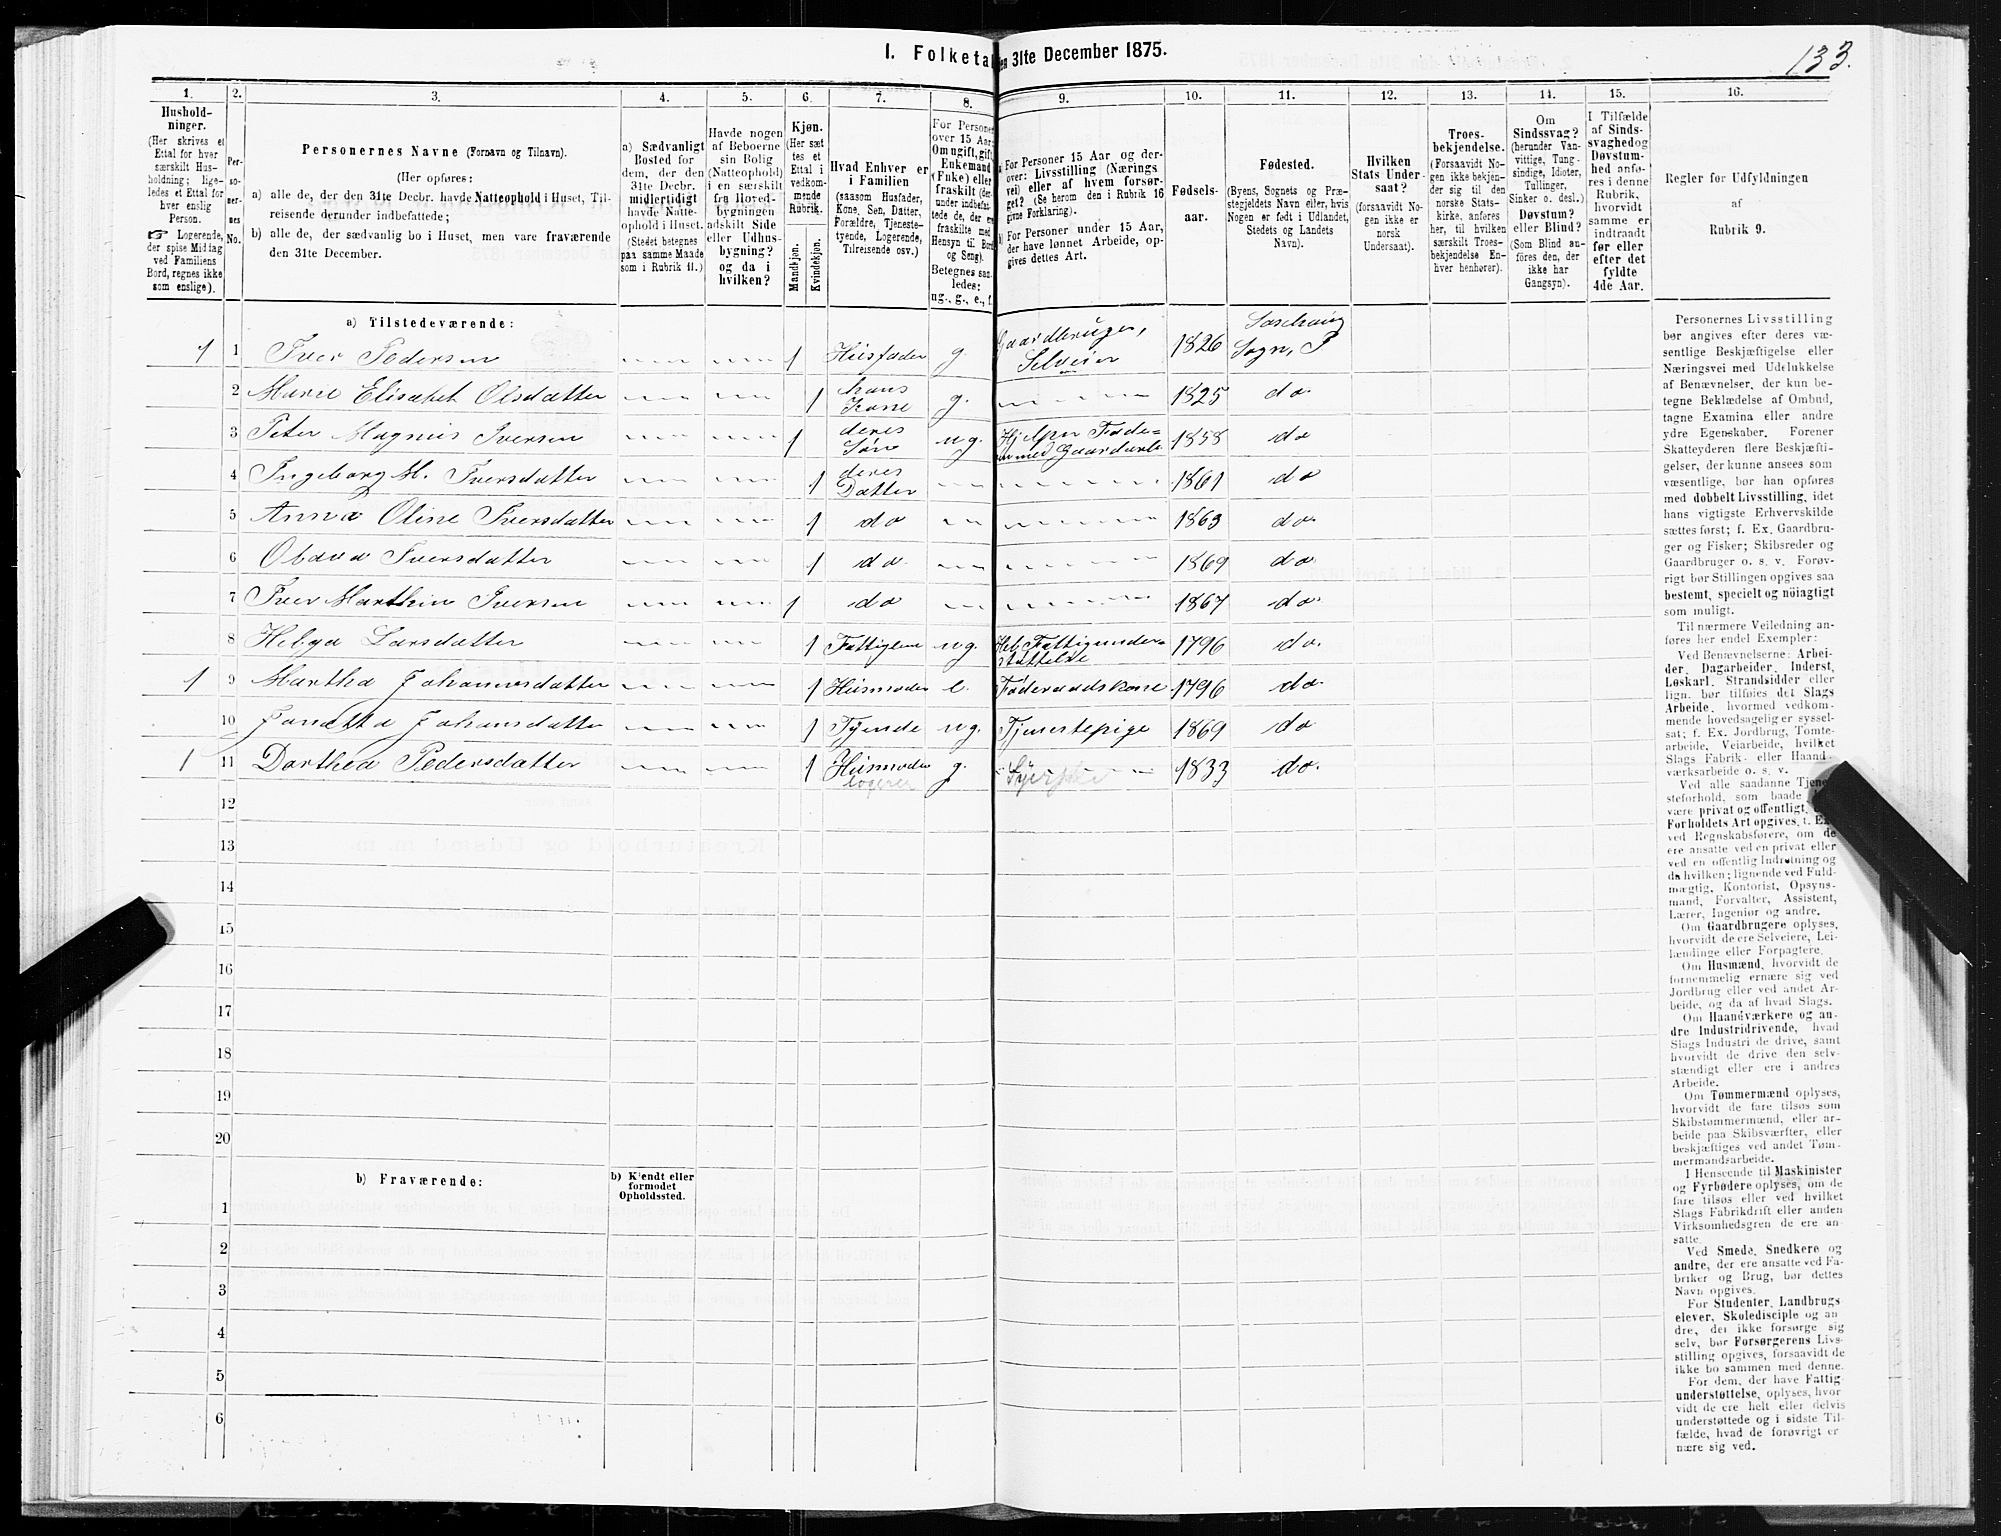 I. Folketa en 31te December 1875.
133.
1.
Hushold-
ninger.
(Her skrives et
Ettal for hver
særskilt Hus-
holdning; lige-
ledes et Ettal for
hver enslig
Person.
☞ Logerende,
der spise Middag
ved Familiens
Bord, regnes ikke
som enslige).
2.
Per-
so-
ner-
nes
No.
3.
Personernes Navne (Fornavn og Tilnavn).
(Her opføres:
a) alle de, der den 31te Decbr. havde Natteophold i Huset, Til-
reisende derunder indbefattede;
b) alle de, der sædvanlig bo i Huset, men vare fraværende
den 31te December.
4.
a) Sædvanligt
Bosted for
dem, der den
31te Decbr.
midlertidigt
havde Natte-
ophold i Huset.
(Stedet betegnes
paa samme Maade
som i Rubrik 11.)
5.
Havde nogen
af Beboerne
sin Bolig
(Natteophold)
i en særskilt
fra Hoved-
bygningen
adskilt Side
eller Udhus-
bygning?
og da i
hvilken?
6.
Kjøn.
(Her sæt
tes et
Ettal i
vedkom-
mende
Rubrik.
Mandkjøn.
Kvindekjøn.
7.
Hvad Enhver er
i Familien
(saasom Husfader,
Kone, Søn, Datter,
Forældre, Tjeneste-
tyende, Logerende,
Tilreisende osv.)
8.
For Personer
over 15 Aar:
Om ugift, gift,
Enkemand
(Fuke) eller
fraskilt (der-
under indbefat-
tede de, der ere
fraskilte med
Hensyn til Bord
og Seng).
Betegnes saa-
ledes:
ug., g., e., f.
9.
a) For Personer 15 Aar og der-
over: Livsstilling (Nærings
vei) eller af hvem forsør-
get? (Se herom den i Rubrik 16
givne Forklaring).
b) For Personer under 15 Aar,
der have lønnet Arbeide, op-
gives dettes Art.
10.
Fødsels-
aar.
11.
Fødested.
(Byens, Sognets og Præ-
stegjeldets Navn eller, hvis
Nogen er født i Udlandet,
Stedets og Landets
Navn).
12.
Hvilken
Stats Under-
saat?
(forsaavidt No-
gen ikke er
norsk
Undersaat).
13.
Troes-
bekjendelse.
(Forsaavidt No-
gen ikke bekjen-
der sig til den
norske Stats-
kirke, anføres
her, til hvilken
særskilt Troes-
bekjendelse En-
hver henhører).
14.
Om
Sindssvag?
(herunder Van-
vittige, Tung-
sindige, Idioter,
Tullinger,
Sinker o. desl.)
Døvstum?
eller Blind?
(Som Blind an-
føres den, der
ikke har
Gangsyn).
15.
I Tilfælde
af Sinds-
svaghed og
Døvstum-
hed anfø-
res i denne
Rubrik,
hvorvidt
samme er
indtraadt
før eller
efter det
fyldte
4de Aar.
16.
Regler for Udfyldningen
af
Rubrik 9.
a) Tilstedeværende:
1 1 Iver Pedersen 1 Husfader g Gaardbruger, Selveier 1826 Sogn, P
2 Marie Elisabet Olsdatter 1 hans Kone g. 1825 do
3 Peter Magnus Iversen 1 deres Søn ug. Hjelper Fade= med Gaardarb. 1858 do
4 Ingeborg M. Iversdatter 1 deres Datter 1861 do
5 Anna Oline Iversdatter 1 do 1863 do.
6 Iversdatter 1 do. 1869 do
7 Iver Marthin Iversen 1 do 1867 do.
8 Helga Larsdatter 1 Fattiglem ug. Fattigunder= støttelse 1796 do.
1 9 Martha Johannesdatter 1 Husmoder e. Føderaadskone 1796 do.
10 Johansdatter 1 Tyende ug. Tjenestepige 1869 do
1 11 Dorthea Pedersdatter 1 Husmoder logerer g. Syerske 1833 do.
12
13
14
15
16
17
18
19
20
b) Fraværende:
b) Kjendt eller
formodet
Opholdssted.
1
2
3
4
5
6
Personernes Livsstilling
bør angives efter deres væ-
sentlige Beskjæftigelse eller
Næringsvei med Udelukkelse
af Benævnelser, der kun be-
tegne Beklædelse af Ombud,
tagne Examina eller andre
ydre Egenskaber. Forener
Skatteyderen flere Beskjæfti-
gelser, der kunne ansees som
væsentlige, bør han opføres
med dobbelt Livsstilling, idet
hans vigtigste Erhvervskilde
sættes først; f. Ex. Gaardbru-
ger og Fisker; Skibsreder og
Gaardbruger o. s. v. Forøv-
rigt bør Stillingen opgives saa
bestemt, specielt og nöiagtigt
som muligt.
Til nærmere Veiledning an-
føres her endel Exempler:
Ved Benævnelserne: Arbei-
der, Dagarbeider, Inderst,
Løskarl, Strandsidder eller
lign. bør tilføies det Slags
Arbeide, hvormed vedkom-
mende hovedsagelig er syssel-
sat; f. Ex. Jordbrug, Tomte-
arbeide, Veiarbeide, hvilket
Slags Fabrik- eller Haand-
værksarbeide o. s. v.
Ved alle saadanne Tjene-
steforhold, som baade
være privat og offentligt,
Forholdets Art opgives, f. Ex.
ved Regnskabsførere, om de
ere ansatte ved en privat eller
ved en offentlig Indretning og
da hvilken; lignende ved Fuld-
mægtig, Kontorist, Opsyns-
mand, Forvalter, Assistent,
Lærer, Ingeniør og andre.
Om Gaardbrugere oplyses,
hvorvidt de ere Selveiere, Lei-
lændinge eller Forpagtere.
Om Husmænd, hvorvidt de
fornemmelig ernære sig ved
Jordbrug eller ved andet Ar-
beide, og da af hvad Slags.
Om Haandværkere og an-
dre Industridrivende, hvad
Slags Industri de drive, samt
hvorvidt de drive den selv-
stændigt eller ere i andres
Arbeide.
Om Tømmermænd oplyses,
hvorvidt de fare tilsøs som
Skibstømmermænd, eller ar-
beide paa Skibsværfter, eller
beskjæftiges ved andet Tøm-
mermandsarbeide.
I Henseende til Maskinister
og Fyrbødere oplyses, om de
fare tilsøs eller ved hvilket
Slags Fabrikdrift eller anden
Virksomhedsgren de ere an-
satte.
Ved Smede, Snedkere og
andre, der ere ansatte ved Fa-
briker og Brug, bør dettes
Navn opgives.
For Studenter, Landbrugs-
elever, Skoledisciple og an-
dre, der ikke forsørge sig
selv, bør Forsørgerens Livs-
stilling opgives, forsaavidt de
ikke bo sammen med denne.
For dem, der have Fattig-
understøttelse, oplyses, hvor
vidt de ere helt eller delvis
understøttede og i sidste Til-
fælde, hvad de forøvrigt er
nære sig ved.